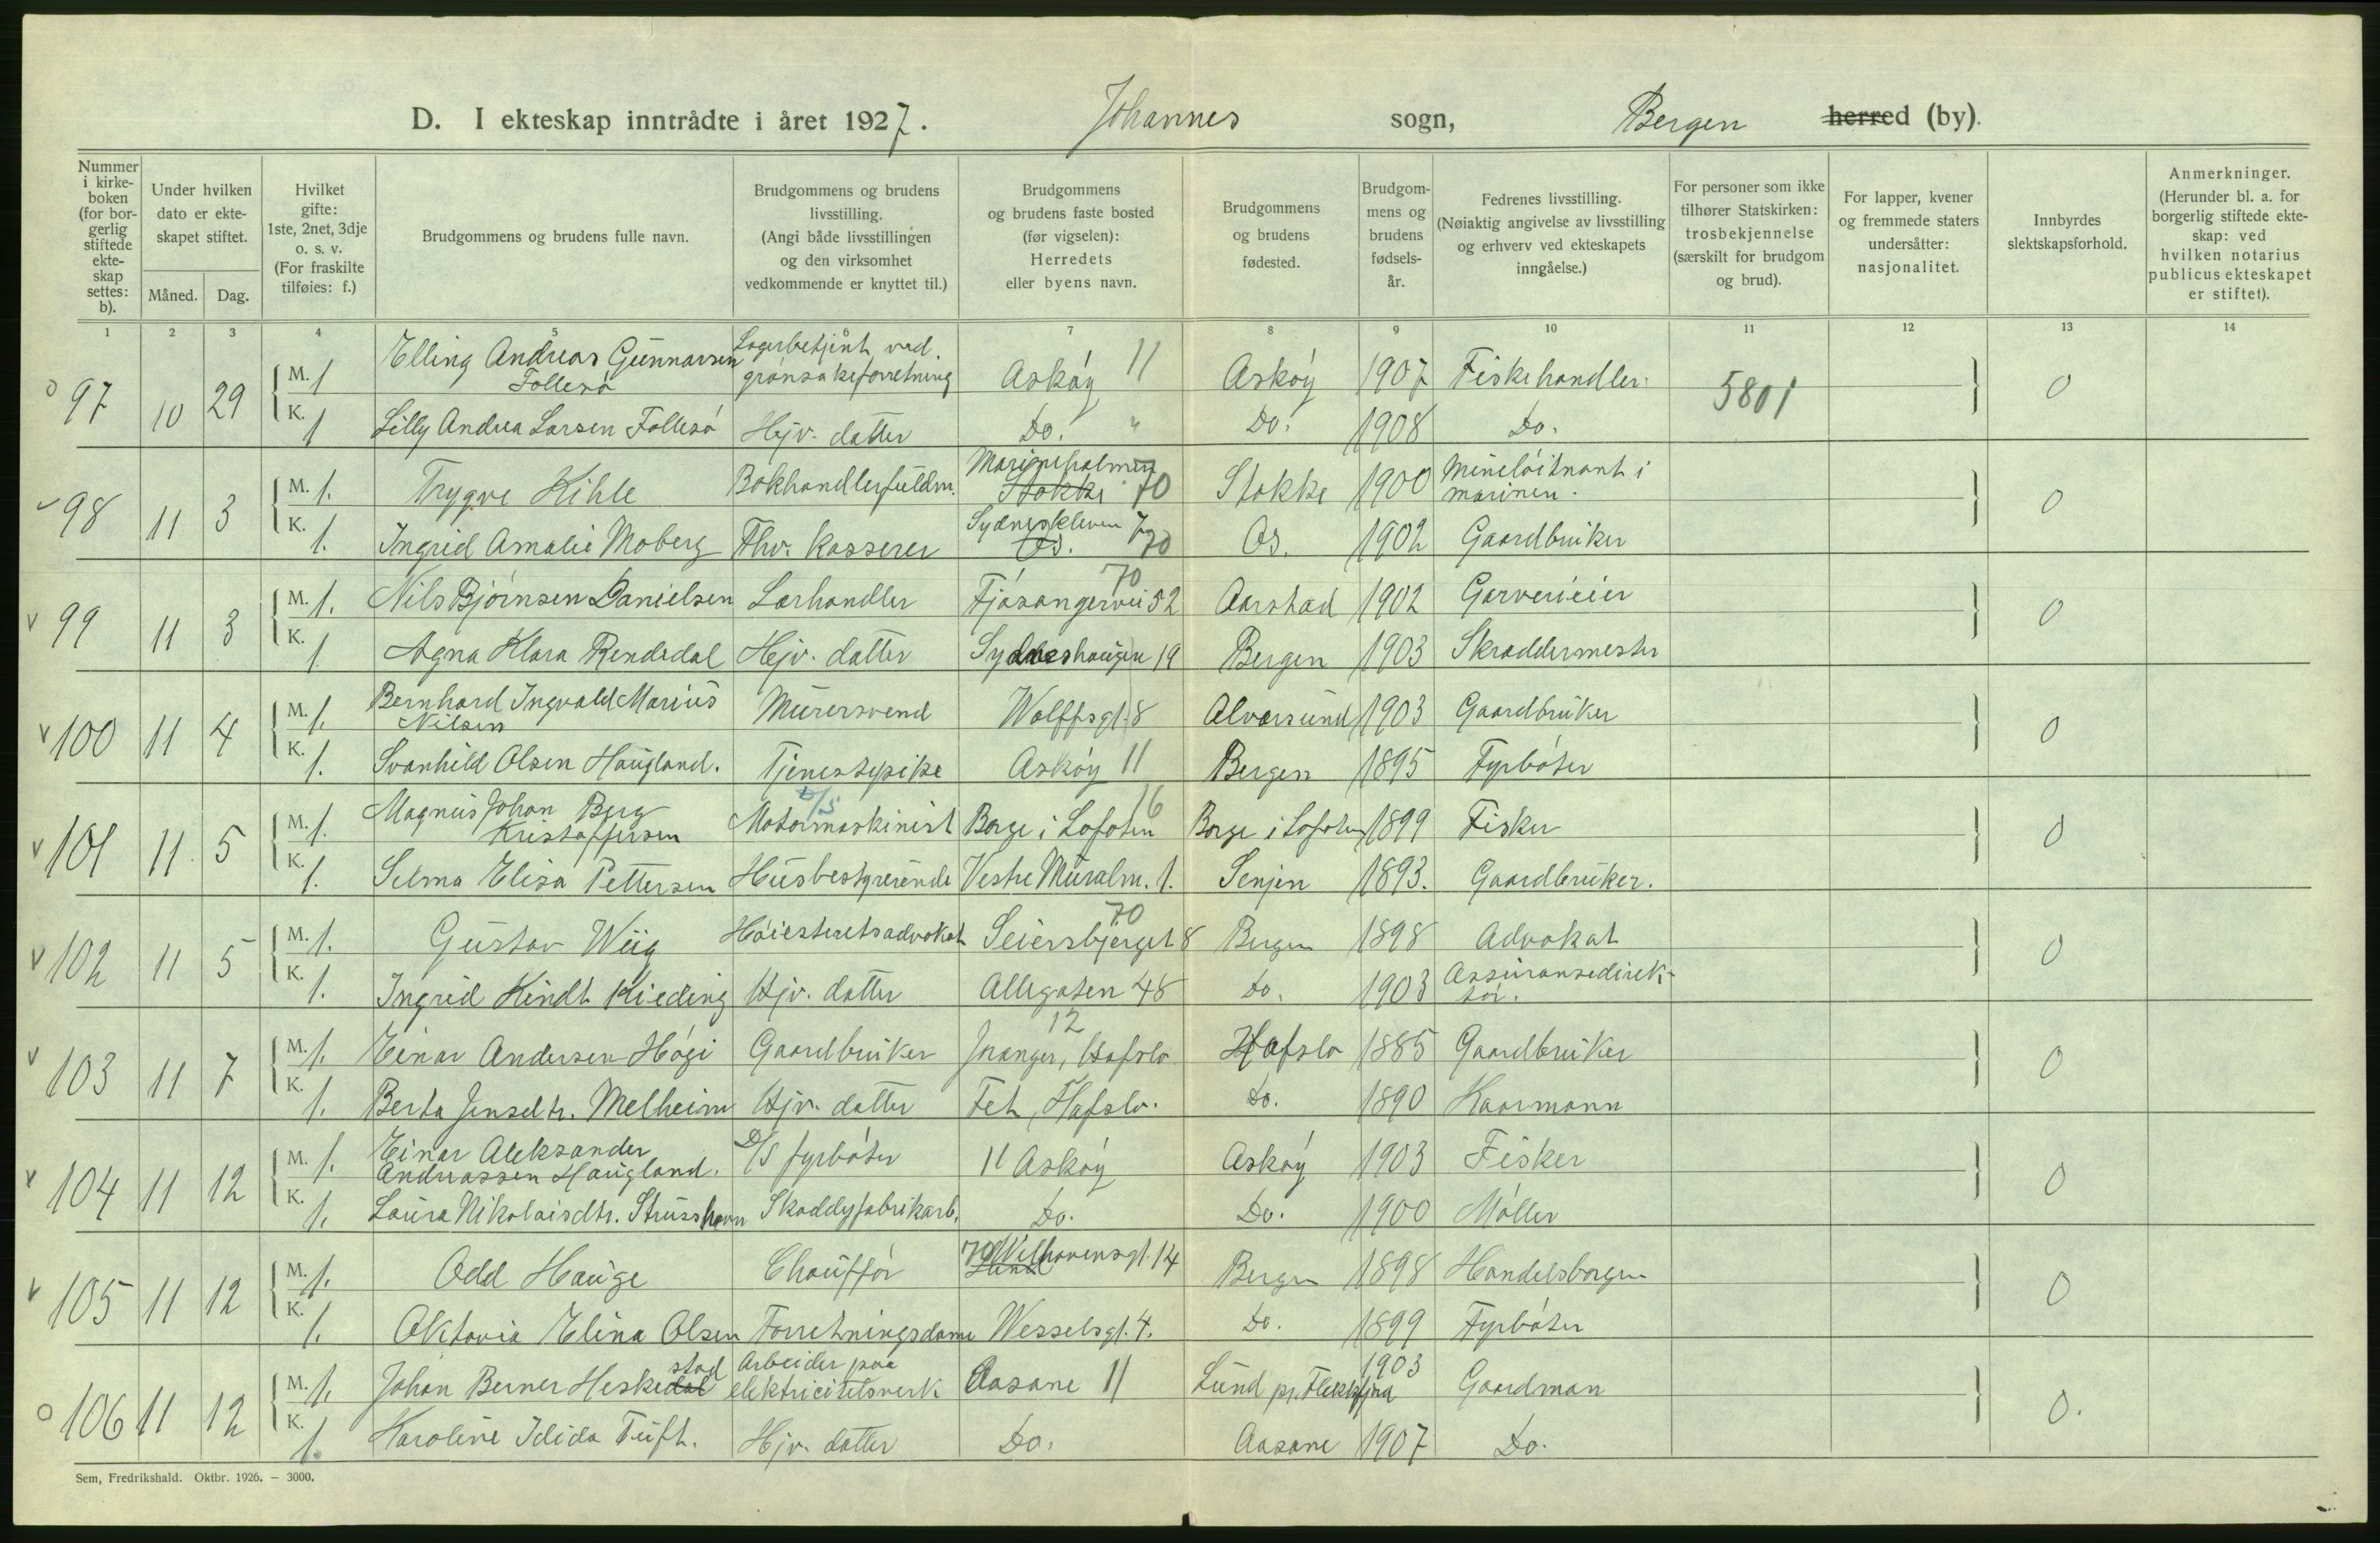 D. I ekteskap inntrådte i året 1927. Johannes sogn, Bergen herred (by).
Nummer i kirke-boken (for bor-gerlig stiftede ekte-skap settes: b).
Under hvilken dato er ekte-skapet stiftet.
Måned. Dag.
Hvilket gifte: 1ste, 2net, 3dje o. s. v. (For fraskilte tilføies: f.)
Brudgommens og brudens fulle navn.
Brudgommens og brudens livsstilling. (Angi både livsstillingen og den virksomhet vedkommende er knyttet til.)
Brudgommens og brudens faste bosted (før vigselen): Herredets eller byens navn.
Brudgommens og brudens fødested.
Brudgom-mens og brudens fødsels-år.
Fedrenes livsstilling. (Nøiaktig angivelse av livsstilling og erhverv ved ekteskapets inngåelse.)
For personer som ikke tilhører Statskirken: trosbekjennelse (særskilt for brudgom og brud).
For lapper, kvener og fremmede staters undersåtter: nasjonalitet.
Innbyrdes slektskapsforhold.
Anmerkninger. (Herunder bl. a. for borgerlig stiftede ekte-skap: ved hvilken notarius publicus ekteskapet er stiftet).
1 2 3 4 5 6 7 8 9 10 11 12 13 14
97 10 29 M. 1 Elling Andreas Gunnarsen Follesø Lagerbetjent ved grønsakeforretning Askøy 11 Askøy 1907 Fiskehandler. 5801 0
K. 1 Lilly Andrea Larsen Follesø Hjv. datter Do. " Do. 1908 Do.
98 11 3 M. 1. Trygve Kihle Bokhandlerfuldm. Marineholmen Stokke 70 Stokke 1900 Mineløitnant i marinen. 0
K. 1. Ingrid Amalie Moberg Fhv. kasserer Sydneskleven 7 Os. 70 Os. 1902 Gaardbruker
99 11 3 M. 1. Nils Bjørnsen Danielsen Lærhandler 70 Fjøsangervei 52 Aarstad 1902 Garverieier 0
K. 1 Agna Klara Rendedal Hjv. datter Sydneshaugen 19 Bergen 1903 Skreddermester
100 11 4 M. 1. Bernhard Ingvald Marius Nilsen Murersvend Wolffsgt. 8 Alversund 1903 Gaardbruker 0
K. 1. Svanhild Olsen Haugland. Tjenestepike Askøy 11 Bergen 1895 Fyrbøter
101 11 5 M. 1. Magnus Johan Berg Kristoffersen D/S Motormaskinist Borge i Lofoten 16 Borge i Lofoten 1899 Fisker 0
K. 1. Selma Elisa Pettersen Husbestyrerinde Vestre Muralm. 1. Senjen 1893. Gaardbruker.
102 11 5 M. 1. Gustav Wiig Høiesteretsadvokat 70 Seiersbjerget 8 Bergen 1898 Advokat 0
K. 1. Ingrid Kindt Kieding Hjv. datter Allegaten 48 Do. 1903 Assuransedirek-tør.
103 11 7 M. 1. Einar Andersen Høgi Gaardbruker 12 Jranger, Hafslo Hafslo 1885 Gaardbruker 0
K. 1. Berta Jensdtr. Melheim Hjv. datter Fet, Hafslo. Do. 1890 Kaarmann
104 11 12 M. 1. Einar Aleksander Andreassen Haugland. D/S fyrbøter 11 Askøy Askøy 1903 Fisker 0
K. 1. Laura Nikolaisdtr. Strusshavn Skoddyfabrikarb. Do. Do. 1900 Møller
105 11 12 M. 1. Odd Hauge Chauffør 70 Welhavensgt. 14 Bergen 1898 Handelsborger 0
K. 1. Oktavia Elina Olsen Forretningsdame Wesselsgt. 4. Do. 1899 Fyrbøter
106 11 12 M. 1. Johan Berner Heskedal stad Arbeider paa elektricitetsverk Aasane 11 Lund pr. Flekkefjord 1903 Gaardman 0.
K. 1. Karoline Idida Tuft. Hjv. datter Do. Aasane 1907 Do.
Sem, Fredrikshald. Oktbr. 1926. — 3000.